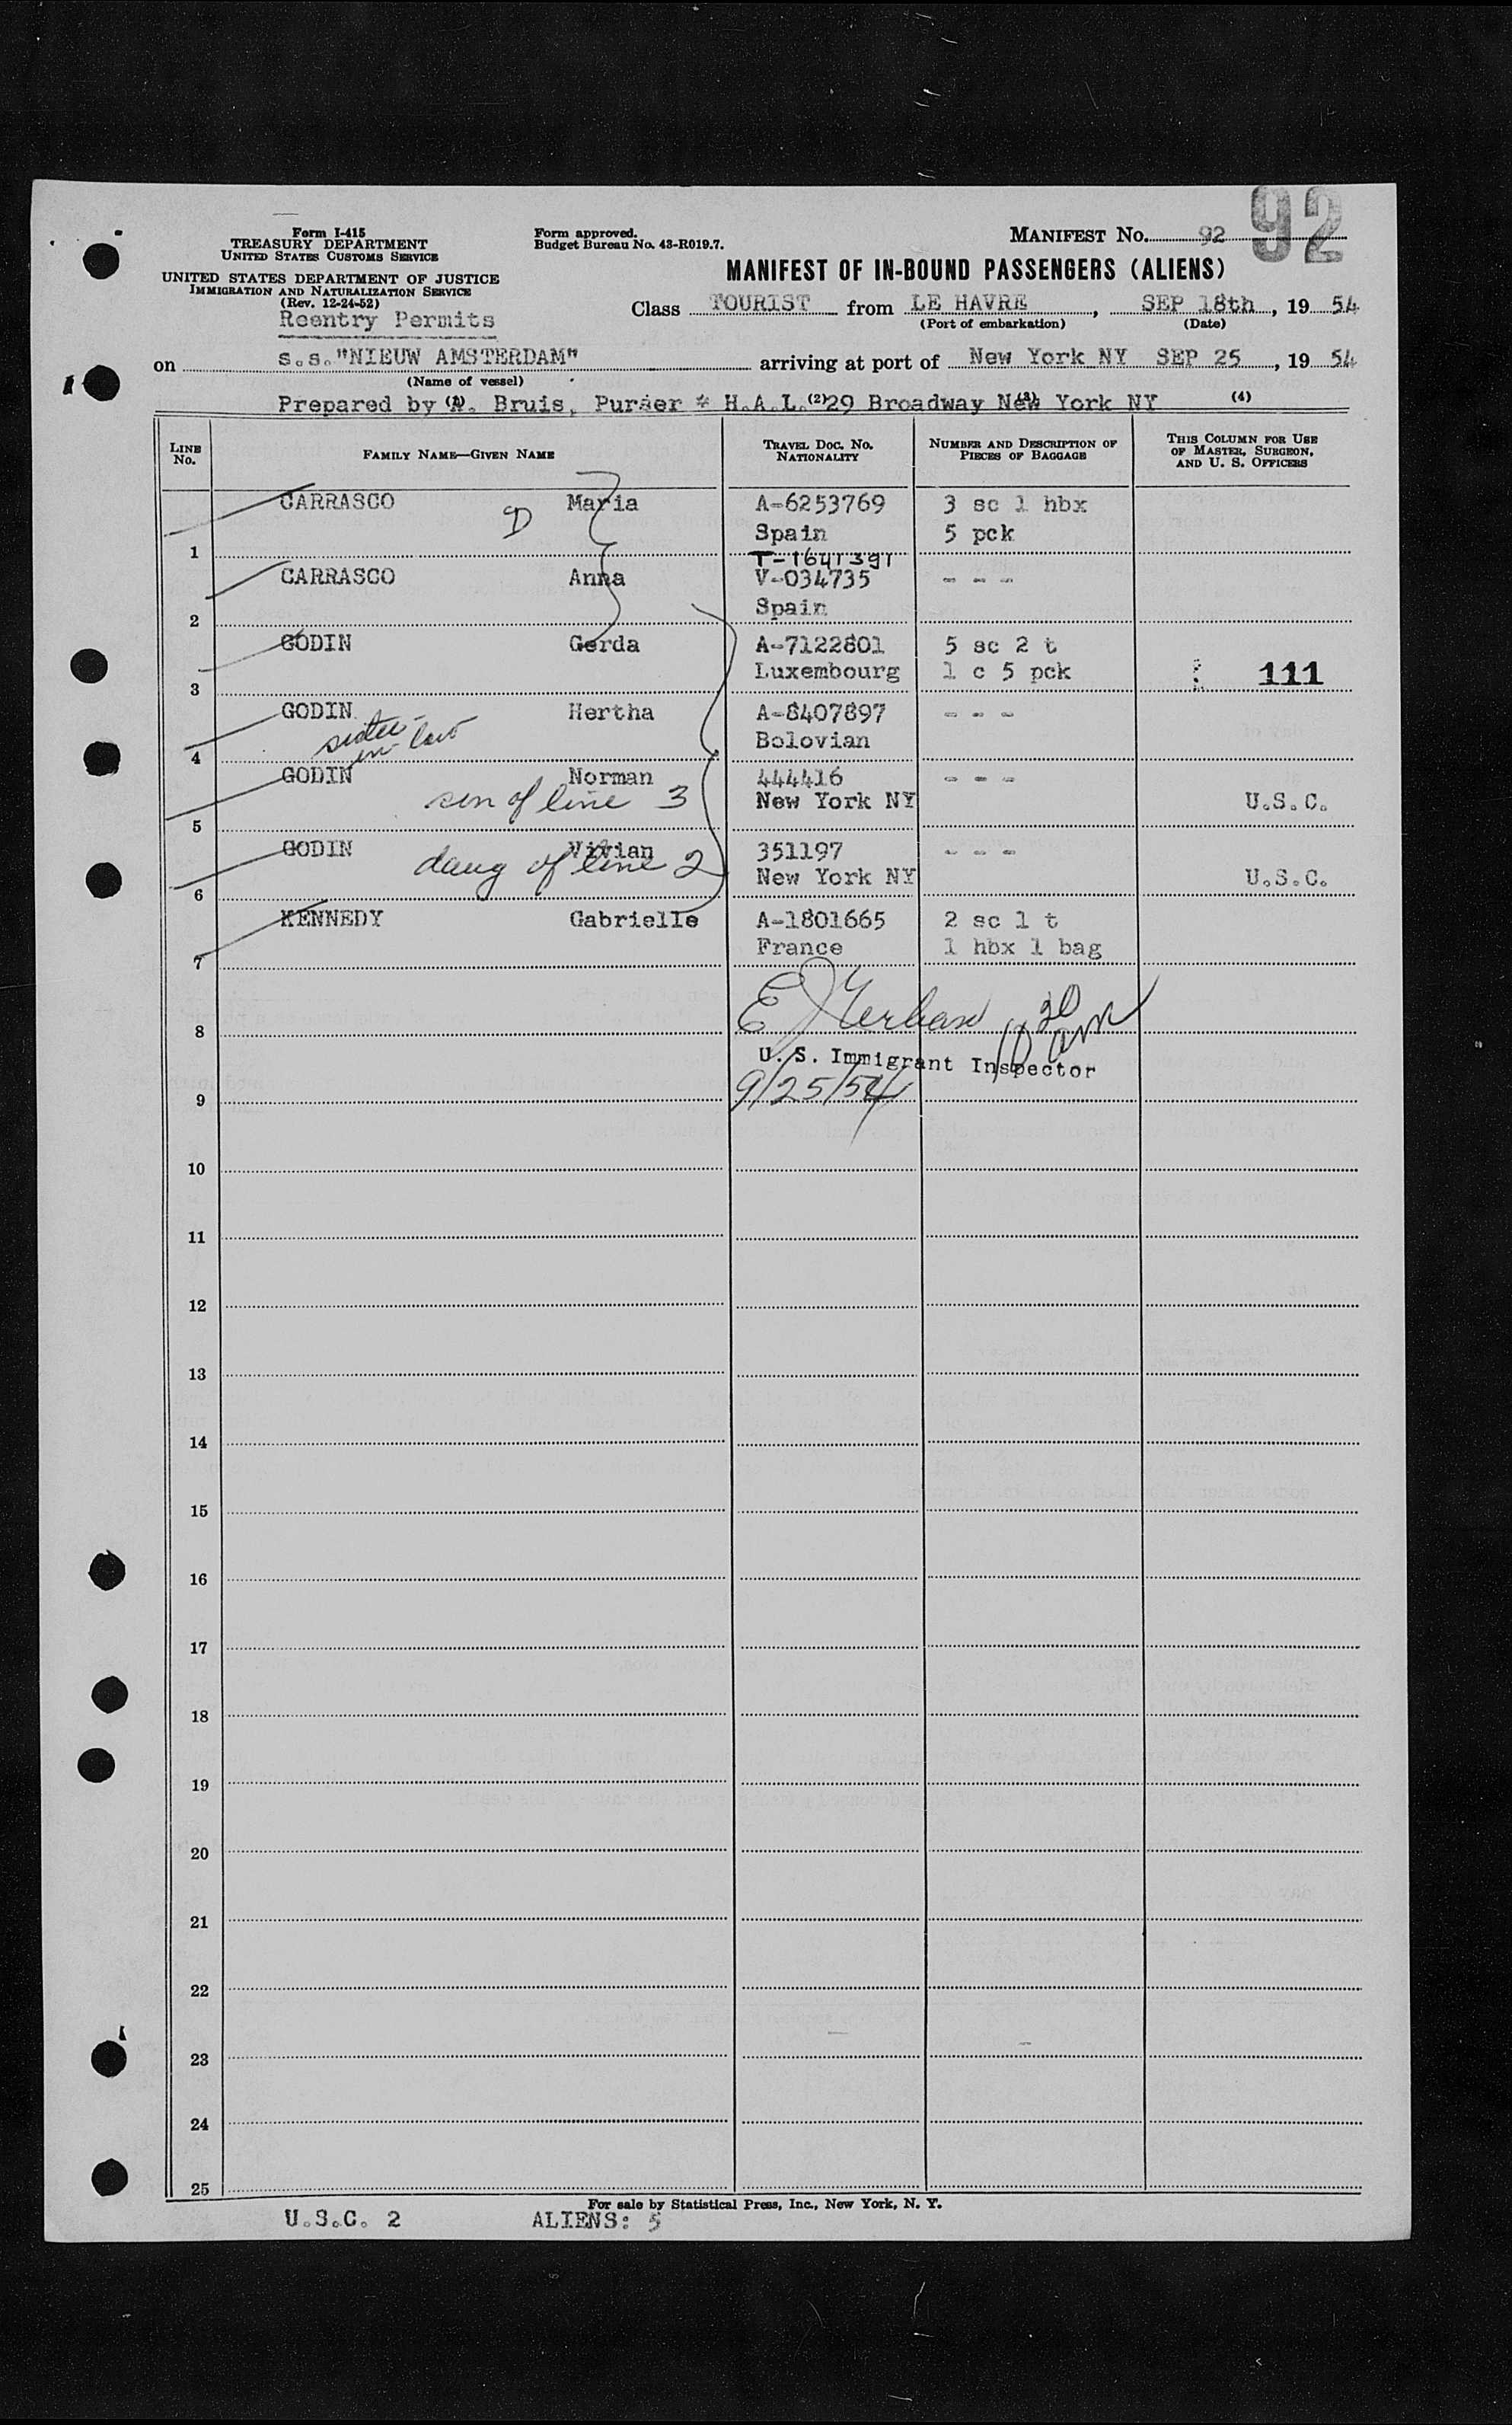 Form I-415
TREASURY DEPARTMENT
UNITED STATES CUSTOMS SERVICE
UNITED STATES DEPARTMENT OF JUSTICE
IMMIGRATION AND NATURALIZATION SERVICE
(Rev. 12-24-52)
Reentry Permits
Form approved.
Budget Bureau No. 43-R019.7.
MANIFEST NO. 92
92
MANIFEST OF IN-BOUND PASSENGERS (ALIENS)
Class TOURIST from LE HAVRE, SEP 18th, 19 54
(Port of embarkation) (Date)
on s.s."NIEUW AMSTERDAM" arriving at port of New York NY SEP 25, 19 54
(Name of vessel)
Prepared by (1) Bruis, Purser * H.A.L. (2) 29 Broadway New York NY (4)
LINE NO. FAMILY NAME—GIVEN NAME TRAVEL DOC. NO. NATIONALITY NUMBER AND DESCRIPTION OF PIECES OF BAGGAGE THIS COLUMN FOR USE OF MASTER, SURGEON, AND U. S. OFFICERS
CARRASCO Maria A-6253769 3 sc 1 hbx
1 Spain 5 pck
T-1641391
CARRASCO Anna V-034735 - - -
2 Spain
GODIN Gerda A-7122801 5 sc 2 t
3 Luxembourg 1 c 5 pck 111
GODIN Hertha A-8407897 - - -
sister-in-law
4 Bolovian
GODIN Norman 444416 - - -
5 son of line 3 New York NY U.S.C.
GODIN Vivian 351197 - - -
daug of line 2
6 New York NY U.S.C.
KENNEDY Gabrielle A-1801665 2 sc 1 t
7 France 1 hbx 1 bag
8
10 30 am
U.S. Immigrant Inspector
9 9/25/54
10
11
12
13
14
15
16
17
18
19
20
21
22
23
24
25
For sale by Statistical Press, Inc., New York, N. Y.
U.S.C. 2 ALIENS: 5